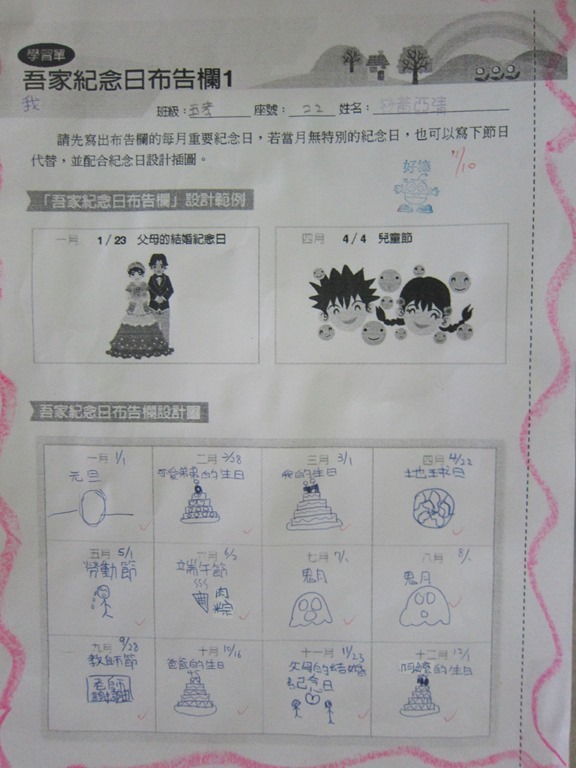 學習單
吾家紀念日布告欄1
我
班級：五孝 座號：22 姓名：
請先寫出布告欄的每月重要紀念日，若當月無特別的紀念日，也可以寫下節日
代替，並配合紀念日設計插圖。
好棒
11/10
「吾家紀念日布告欄」設計範例
一月 1/23 父母的結婚紀念日
四月 4/4 兒童節
吾家紀念日布告欄設計圖
一月 1/1
元旦
二月 2/28
可愛弟弟的生日
三月 3/1
我的生日
四月 4/22
地球日
五月 5/1
勞動節
六月 6/2
端午節
肉粽
七月 7/1
鬼月
八月 8/1
鬼月
九月 9/28
教師節
老師
十月 10/16
爸爸的生日
十一月 11/23
父母的結婚
紀念日
十二月 12/1
阿嬤的生日